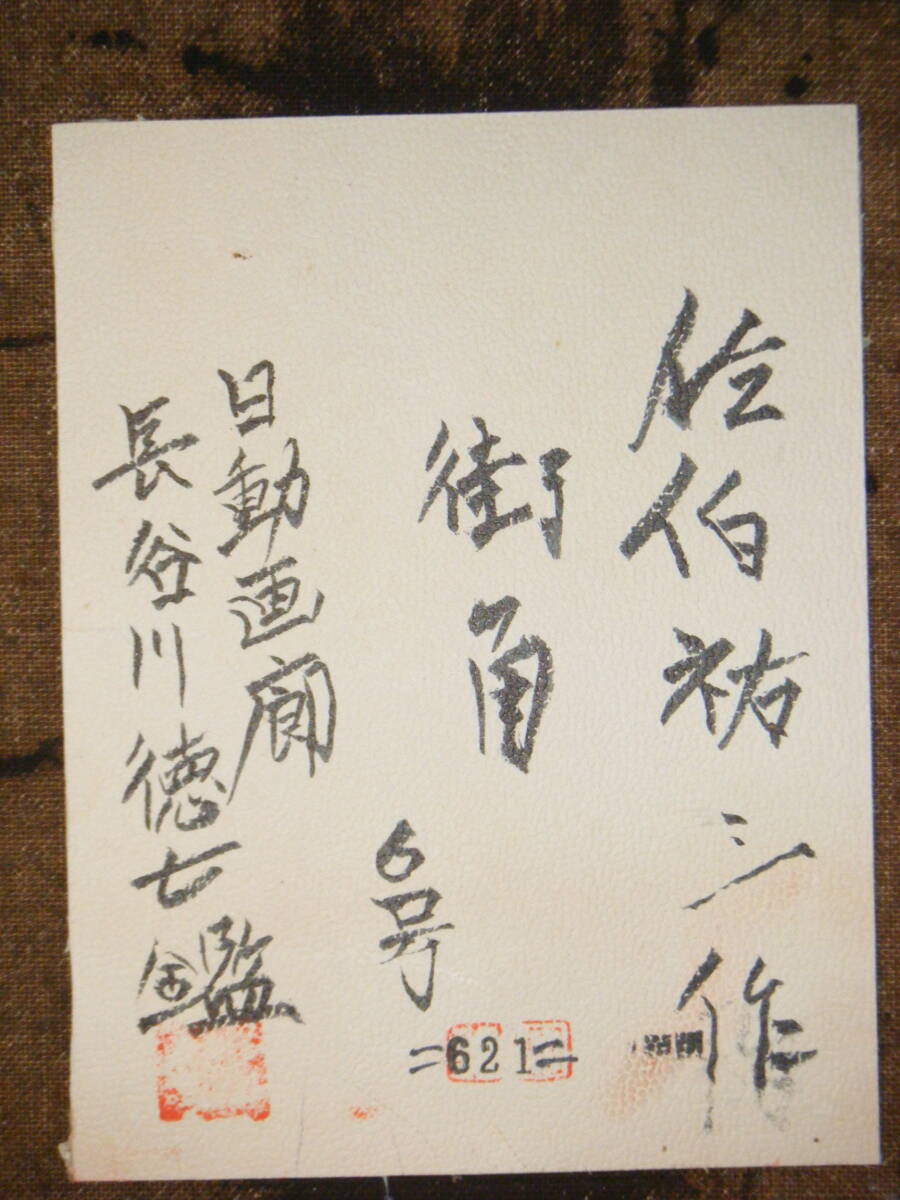 佐伯祐三作
街角
6号
=621=
日動画廊
長谷川徳七鑑